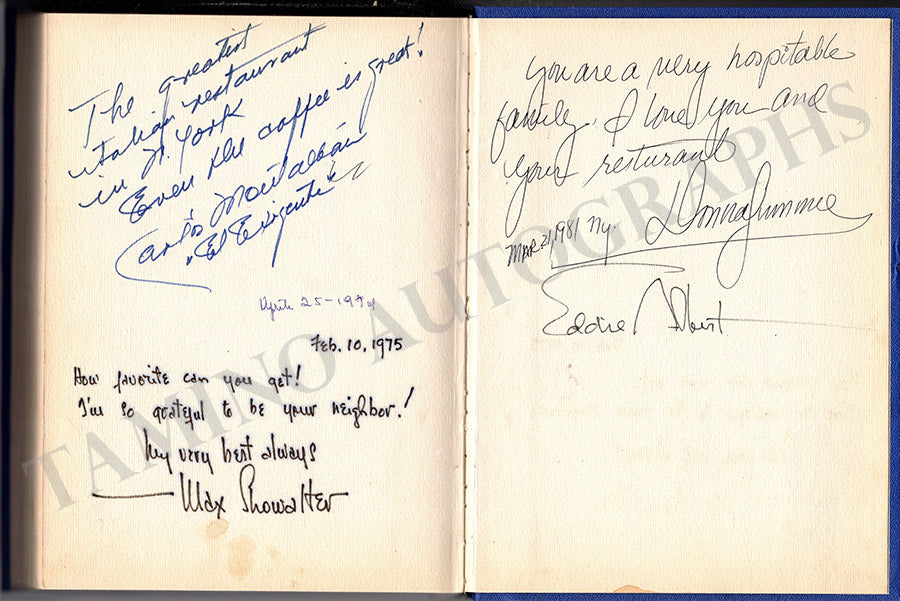 The greatest
italian restaurant
in N. York
Even the coffee is great!
Carlos Montalbán
"El Exigente"
April 25-1974
Feb. 10, 1975
How favorite can you get!
I'm so grateful to be your neighbor!
My very best always
Max Showalter
You are a very hospitable
family. I love you and
your resturant
Donna Summer
MAR 21, 1981 Ny.
Eddie Albert
TAMINO AUTOGRAPHS